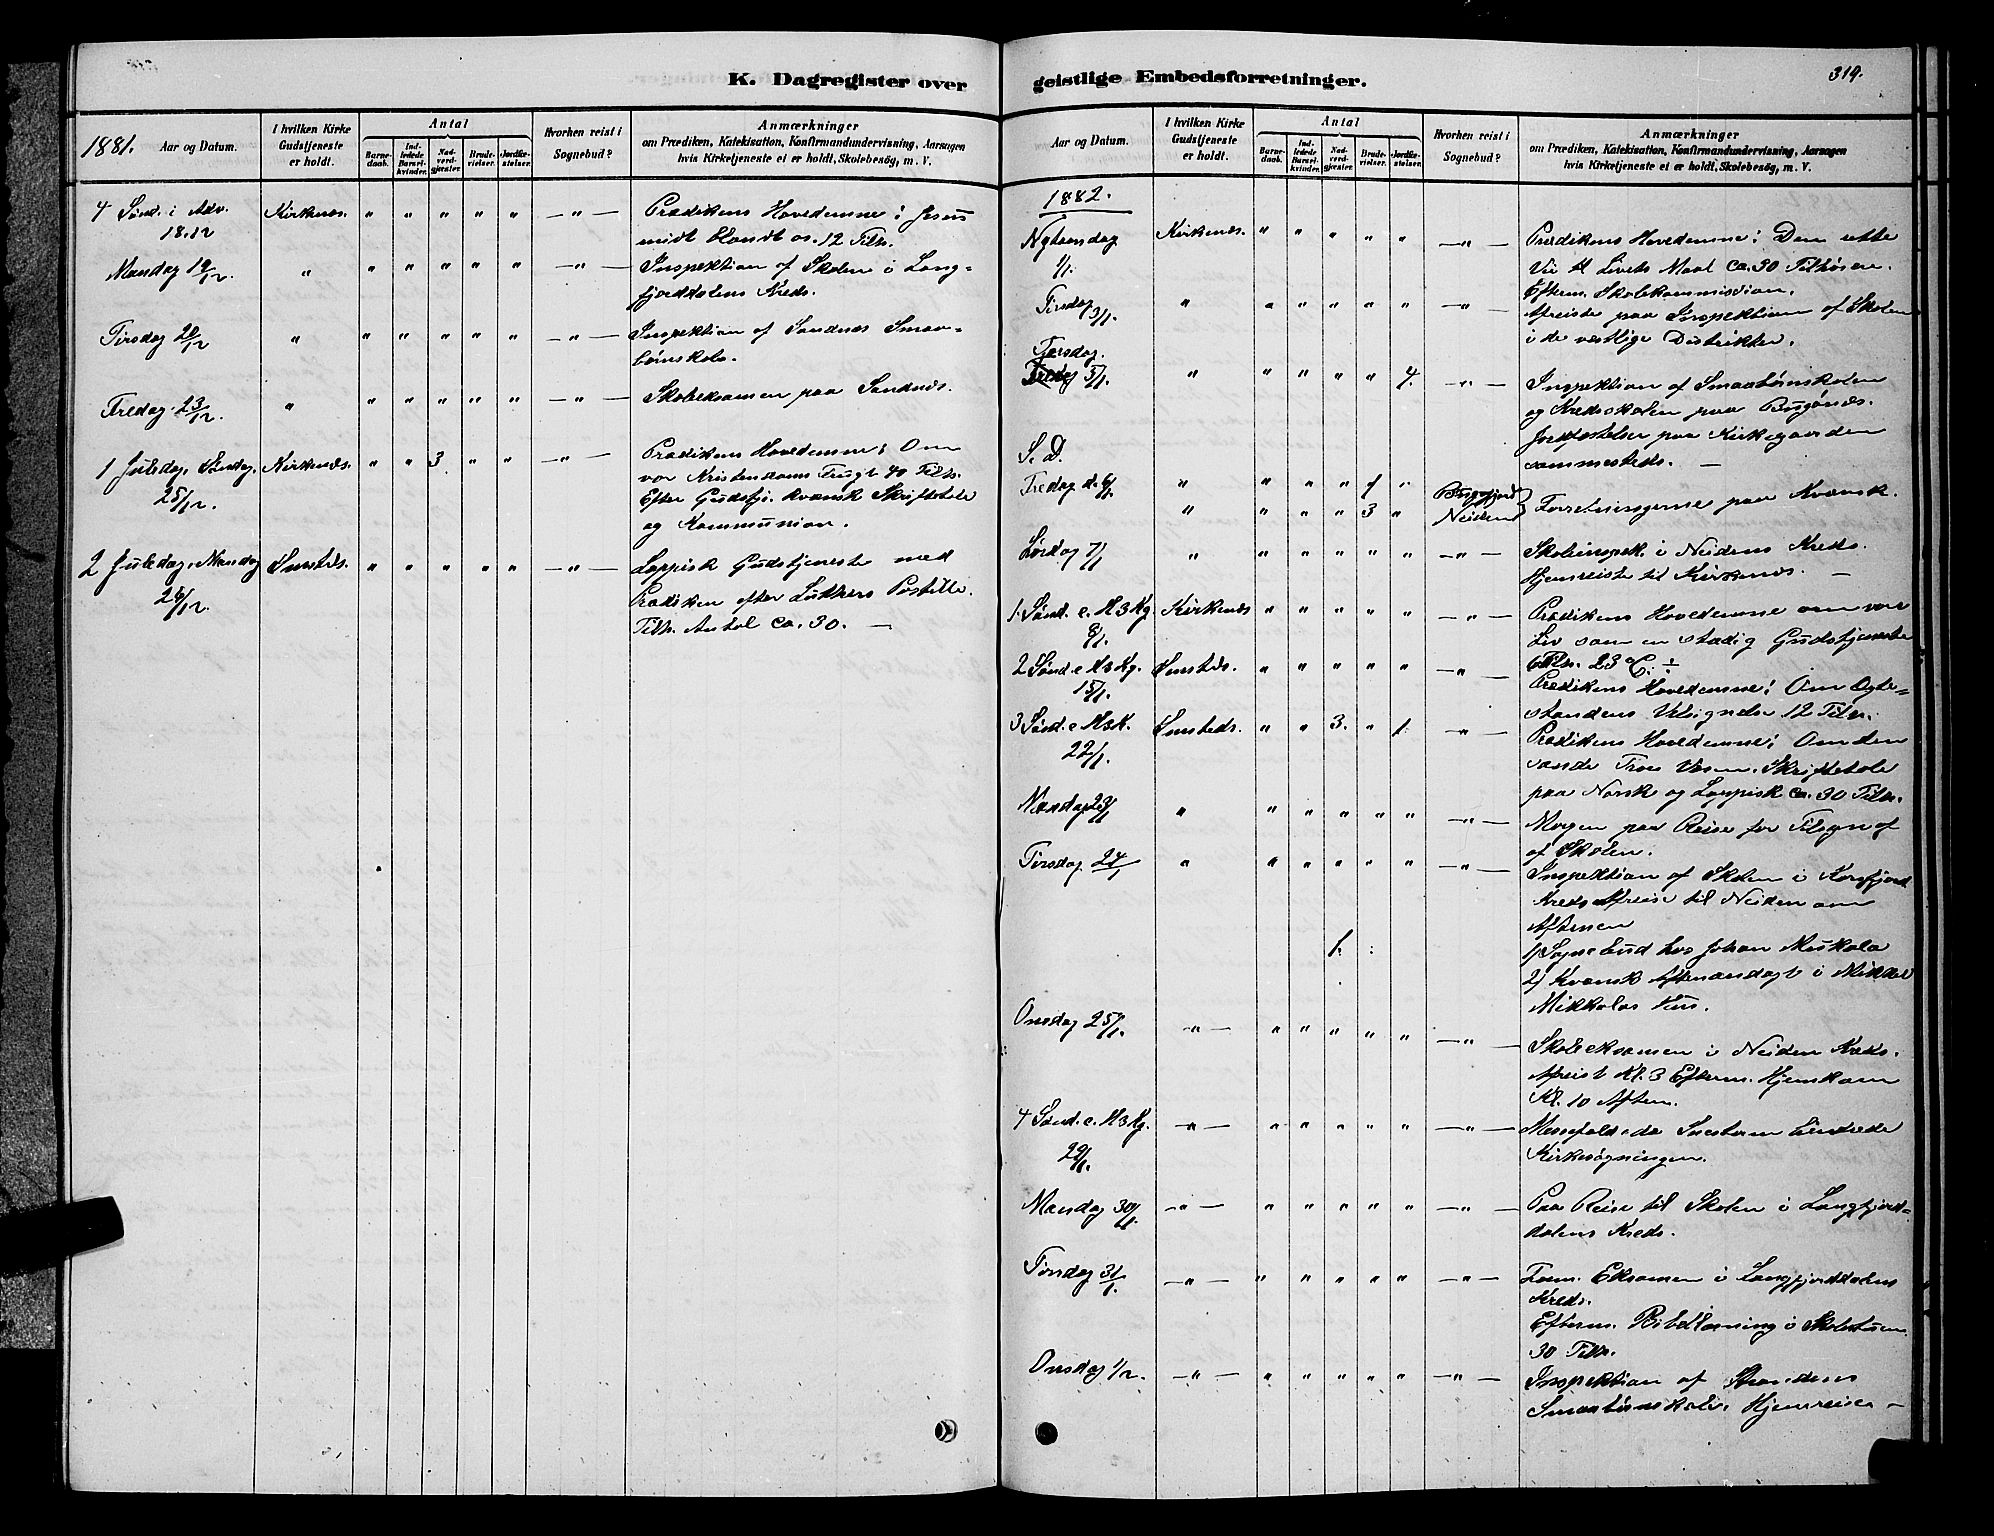 K. Dagregister over
1881.
Aar og Datum.
I hvilken Kirke Gudstjeneste er holdt.
Antal
Barne-daab.
Ind-ledede Barsel-kvinder.
Nad-verd-gjæster.
Brude-vielser.
Jordfæ-stelser.
Hvorhen reist i Sognebud?
Anmærkninger
om Prædiken, Katekisation, Konfirmandundervisning, Aarsagen
hvis Kirketjeneste et er holdt, Skolebesög, m. V.
4 Sønd. i Adv. Kirkenæs. " " " " " — " — Prædikens Hovedemne: Jesus
18.12 midt blandt os. 12 Tilh.
Mandag 19/12. " " " " " " — " — Inspektion af Skolen i Lang-
fjorddalens Kreds.
Tirsdag 20/12 " " " " " " — " — Inspektion af Sandnæs Smaa-
børnskole.
Fredag 23/12. " " " " " " — " — Skoleeksamen paa Sandnæs.
1 Juledag, Søndag, Kirkenæs. " " 3 " " — " — Prædikens Hovedemne: Om
25/12. vor Kristendoms Frugt 40 Tilh.
Efter Gudstj. kvænsk Skriftetale
og Kommunion.
2 Juledag, Mandag Smsteds. " " " " " — " — Lappisk Gudstjeneste med
26/12. Prædiken efter Luthers Postille.
Tilh. Antal ca. 30. —
geistlige Embedsforretninger.
319.
Aar og Datum.
I hvilken Kirke Gudstjeneste er holdt.
Antal
Barne-daab.
Ind-ledede Barsel-kvinder.
Nad-verd-gjæster.
Brude-vielser.
Jordfæ-stelser.
Hvorhen reist i Sognebud?
Anmærkninger
om Prædiken, Katekisation, Konfirmandundervisning, Aarsagen
hvis Kirketjeneste et er holdt, Skolebesög, m. V.
1882.
Nytaarsdag Kirkenæs. " " " " " — " — Prædikens Hovedemne: Den rette
1/1. Vei til Livets Maal ca. 30 Tilhørere.
Efterm. Skolekommission.
Tirsdag 3/1. " " " " " " — " — Afreiste paa Inspektion af Skolen
i de vestlige Distrikter.
Torsdag.
5/1. " " " " " 4. — " — Inspektion af Smaabørnskolen
og Kredsskolen paa Bugønæs.
Jordfæstelser paa Kirkegaarden
S. D. sammesteds. —
Fredag d. 6/1 " " " " 1 " Bugøfjord
" " " " 3 " Neiden } Forretningerne paa Kvænsk.
Lørdag 7/1 " " " " " " — " — Skoleinspek. i Neidens Kreds.
Hjemreiste til Kirkenæs. —
1. Sønd. e. H3Kg. Kirkenæs " " " " " — " — Prædikens Hovedemne om vor
8/1. Liv som en stadig Gudstjeneste
6 Tilh. 23° C. ÷
2 Sønd. e H3Kg. Smsteds. " " " " " — " — Prædikens Hovedemne: Om Ægte-
15/1. standens Velsignelse 12 Tilh.
3 Sønd. e H3K. Smsteds. " " 3. " 1. — " — Prædikens Hovedemne: Om den
22/1. sande Troes Væsen. Skriftetale
paa Norsk og Lappisk ca. 30 Tilh.
Mandag 23/1 " " " " " " — " — Morgen paa Reise for Tilsyn af
af Skolen.
Tirsdag 24/1 " " " " " " — " — Inspektion af Skolen i Korsfjord
Kreds Afreise til Neiden om
Aftenen
1. 1) Sognebud hos Johan Muskala
2) Kvænsk Aftenandagt i Mikkel
Mikkolas Hus.
Onsdag 25/1. — " — " " " " " — " — Skoleeksamen i Neiden Kreds.
Afreist Kl. 3 Efterm. Hjemkom
Kl. 10 Aften.
4 Sønd. e. H3Kg. — " — " " " " " — " — Messefald, da Snestorm hindrede
29/1. Kirkesøgningen.
Mandag 30/1. — " — " " " " " — " — Paa Reise til Skolen i Langfjord-
dalens Kreds.
Tirsdag 31/1. — " — " " " " " — " — Form. Eksamen i Langfjorddalens
Kreds.
Efterm. Bibellæsning i Skolestuen
30 Tilh.
Onsdag 1/2. — " — " " " " " — " — Inspektion af Strandens
Smaabørnskole. Hjemreise —